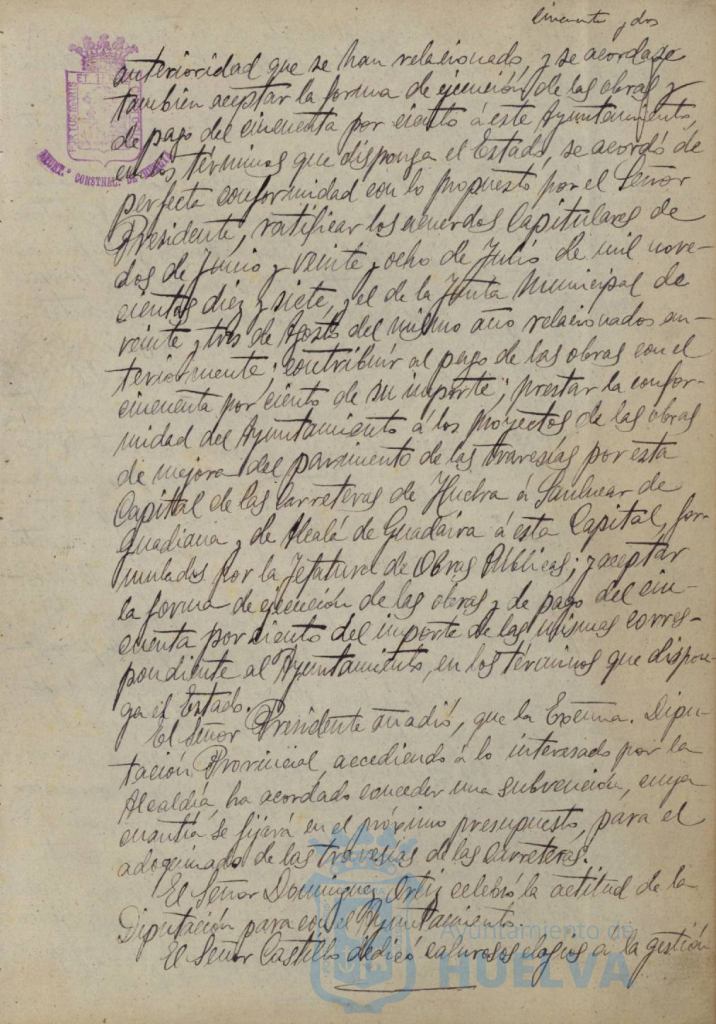 cincuenta y dos
anterioridad que se han relacionado, y se acordase
tambien aceptar la forma de ejecución de las obras y
de pago del cincuenta por ciento á este Ayuntamiento,
en los términos que disponga el Estado, se acordó de
perfecta conformidad con lo propuesto por el Señor
Presidente, ratificar los acuerdos Capitulares de
dos de Junio y veinte y ocho de Julio de mil nove-
cientos diez y siete, y el de la Junta Municipal de
veinte y tres de Agosto del mismo año relacionados an-
teriormente; contribuir al pago de las obras con el
cincuenta por ciento de su importe; prestar la confor-
midad del Ayuntamiento á los proyectos de las obras
de mejora del pavimento de las travesías por esta
Capital de las Carreteras de Huelva á Sanlucar de
Guadiana y de Alcalá de Guadaira á esta Capital, for-
mulados por la Jefatura de Obras Públicas; y aceptar
la forma de ejecución de las obras y de pago del cin-
cuenta por ciento del importe de las mismas corres-
pondiente al Ayuntamiento, en los términos que dispon-
ga el Estado.
El Señor Presidente añadió, que la Excma. Dipu-
tación Provincial, accediendo á lo interesado por la
Alcaldía, ha acordado conceder una subvención, cuya
cuantía se fijará en el próximo presupuesto, para el
adoquinado de las travesías de las Carreteras.
El Señor Dominguez Ortiz celebró la actitud de la
Diputación para con el Ayuntamiento.
El Señor Castillo dedicó calurosos elogios a la gestión
Ayuntamiento de
HUELVA